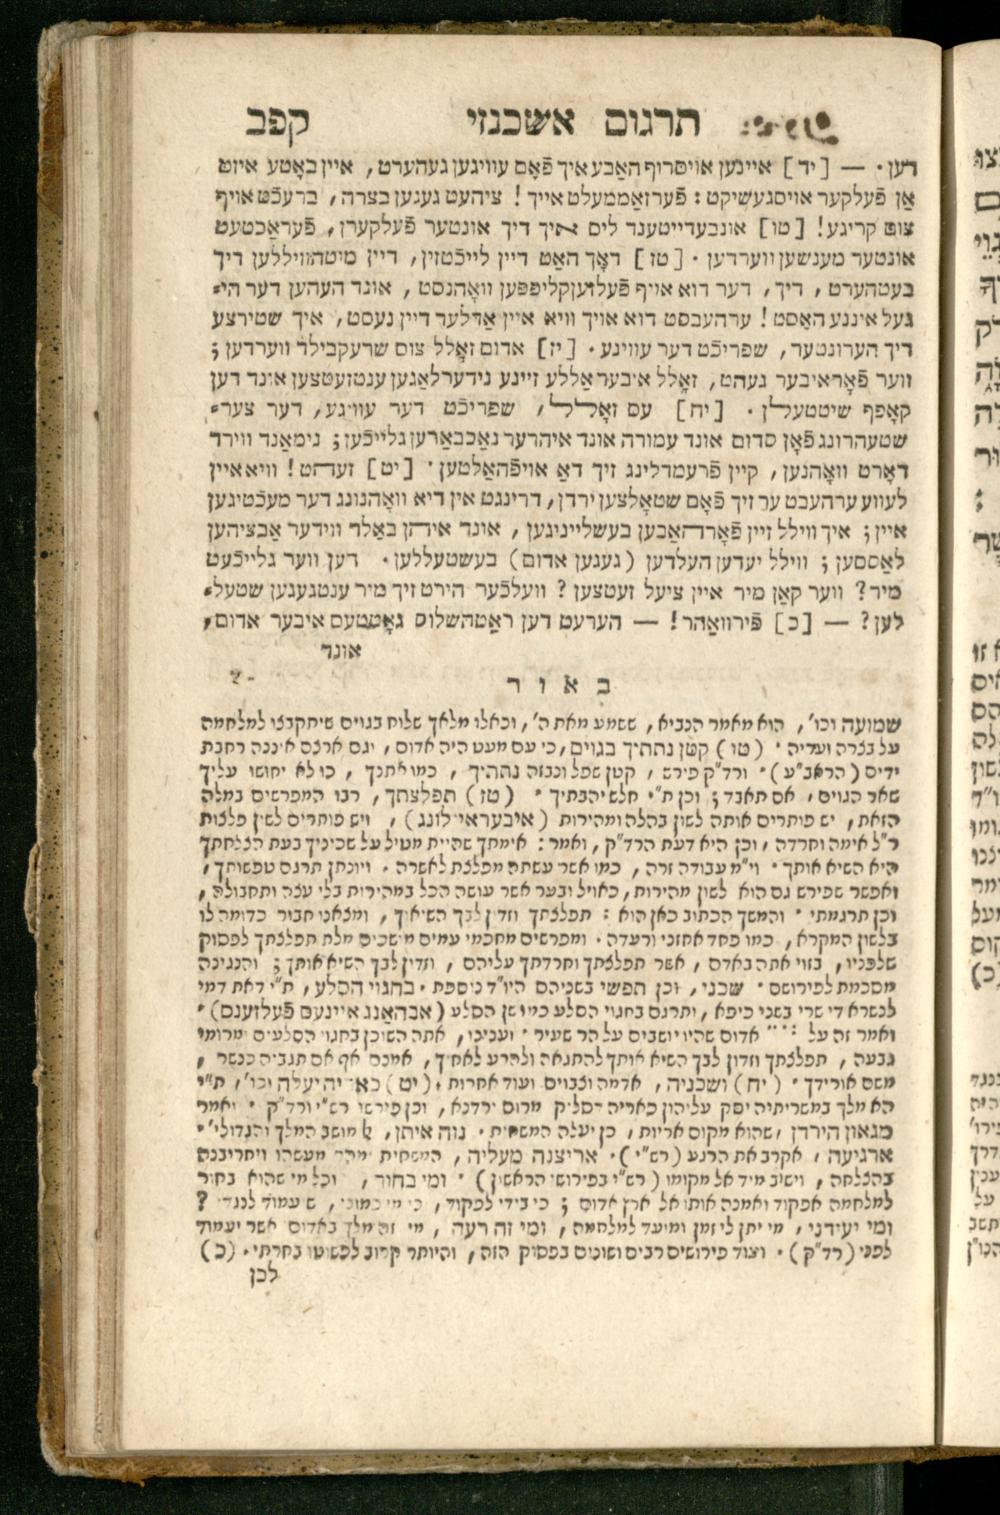 תרגום אשכנזי קפב
דען. — [יד] איינען אויסרוף האַבע איך פֿאָם עוויגען געהערט, איין באָטע איזט
אַן פֿעלקער אויסגעשיקט: פֿערזאַממעלט אייך! ציהעט געגען בצרה, ברעכֿט אויף
צום קריגע! [טו] אונבעדייטענד ליס איך דיך אונטער פֿעלקערן, פֿעראַכטעט
אונטער מענשען ווערדען. [טז] דאָך האַט דיין לייכֿטזין, דיין מוטהוויללען דיך
בעטהערט, דיך, דער דוא אויף פֿעלזען קליפּפּען וואָהנסט, אונד העהען דער הי־
געל איננע האַסט! ערהעבסט דוא אויך וויא איין אַדלער דיין נעסט, איך שטירצע
דיך הערונטער, שפריכֿט דער עוויגע. [יז] אדום זאָלל צום שרעקבילד ווערדען;
ווער פֿאָראיבער געהט, זאָלל איבער אַללע זיינע נידערלאַגען ענטזעטצען אונד דען
קאָפף שיטטעלן. [יח] עס זאָלל, שפריכֿט דער עוויגע, דער צער־
שטעהרונג פֿאָן סדום אונד עמורה אונד איהרער נאַכבאַרען גלייכֿען; נימאַנד ווירד
דאָרט וואָהנען, קיין פֿרעמדלינג זיך דאַ אויפֿהאַלטען. [יט] זעהט! וויא איין
לעווע ערהעבט ער זיך פֿאָם שטאָלצען ירדן, דרינגט אין דיא וואָהנונג דער מעכֿטיגען
איין; איך וויל זיין פֿאָרהאַבען בעשלייניגען, אונד איהן באַלד ווידער אַבציהען
לאַססען; ווילל יעדען העלדען (געגען אדום) בעשטעללען. דען ווער גלייכֿעט
מיר? ווער קאַן מיר איין ציעל זעטצען? וועלכֿער הירט זיך מיר ענטגעגען שטעל־
לען? — [כ] פֿירוואַהר! — הערעט דען ראַטהשלוס גאָטטעס איבער אדום,
אונד
באור
שמועה וכו', הוא מאמר הנביא, ששמע מאת ה', וכאלו מלאך שלוח בגוים שיתקבצו למלחמה
על בצרה ועדיה. (טו) קטן נתתיך בגוים, כי עם מעט היה אדום, וגם ארצם איננה רחבת
ידים (הראב"ע). ורד"ק פירש, קטן שפל ונבזה נתתיך, כמו אתנך, כולא יחושו עליך
שאר הגוים, אם תאבד; וכן ת"י חלש יהבתיך. (טז) תפלצתך, רבו המפרשים במלה
הזאת, יש פותרים אותה לשון בהלה ומהירות (איבעראיילונג), ויש פותרים לשון פלצות
ר"ל אימה וחרדה, וכן היא דעת הרד"ק, ואמר: אימתך שהיית מטיל על שכיניך בעת הצלחתך
היא השיא אותך. וי"מ עבודה זרה, כמו אשר עשתה מפלצת לאשרה. ויונתן תרגם טפשותך,
ואפשר שפירש גם הוא לשון מהירות, כאויל ובער אשר עושה הכל במהירות בלי עצה ותחבולה,
וכן תרגמתי. והמשך הכתוב כאן הוא: תפלצתך וזדון לבך השיאך, ומצאנו חבור כדומה לו
בלשון המקרא, כמו פחד אחזני ורעדה. ומפרשים מחכמי עמים מושכים מלת תפלצתך לפסוק
שלפניו, בזוי אתה באדם, אשר תפלצתך וחרדתך עליהם, וזדון לבך השיא אותך; והנגינה
מסכמת לפירושם. שכני, וכן תפשי בשניהם היו"ד נוספת. בחגוי הסלע, ת"י דאת דמי
לנשרא די שרי בשני כיפא, ותרגם בחגוי הסלע כמו שן הסלע (אבהאַנג איינעס פֿעלזענס).
ואמר זה על אדום שהיו יושבים על הר שעיר. וענינו, אתה השוכן בחגוי הסלעים ומרומי
גבעה, תפלצתך וזדון לבך השיא אותך להתגאה ולהרע לאחיך, אמנם אף אם תגביה כנשר,
משם אורידך. (יח) ושכניה, אדמה וצבוים ועוד אחרות. (יט) כאריה יעלה וכו', ת"י
הא מלך במשריתיה יסק עליהון כאריה דסליק מרום ירדנא, וכן פירשו רש"י ורד"ק. ואמר
מגאון הירדן, שהוא מקום אריות, כן יעלה המשחית. נוה איתן, מושב המלך והגדולי'.
ארגיעה, אקרב את הרגע (רש"י). אריצנה מעליה, המשחית ימהר מעשהו ויחריבנה
בהצלחה, וישיב מיד אל מקומו (רש"י בפירושו הראשון). ומי בחור, וכל מי שהוא בחור
למלחמה אפקוד ואמנה אותו אל ארץ אדום; כי בידי לפקוד, כי מי כמוני, שיעמוד לנגדי?
ומי יעידני, מי יתן לי זמן ומועד למלחמה, ומי זה רעה, מי זה מלך באדום אשר יעמוד
לפני (רד"ק). ועוד פירושים רבים ושונים בפסוק הזה, והיותר קרוב לפשוטו בחרתי. (כ)
לכן